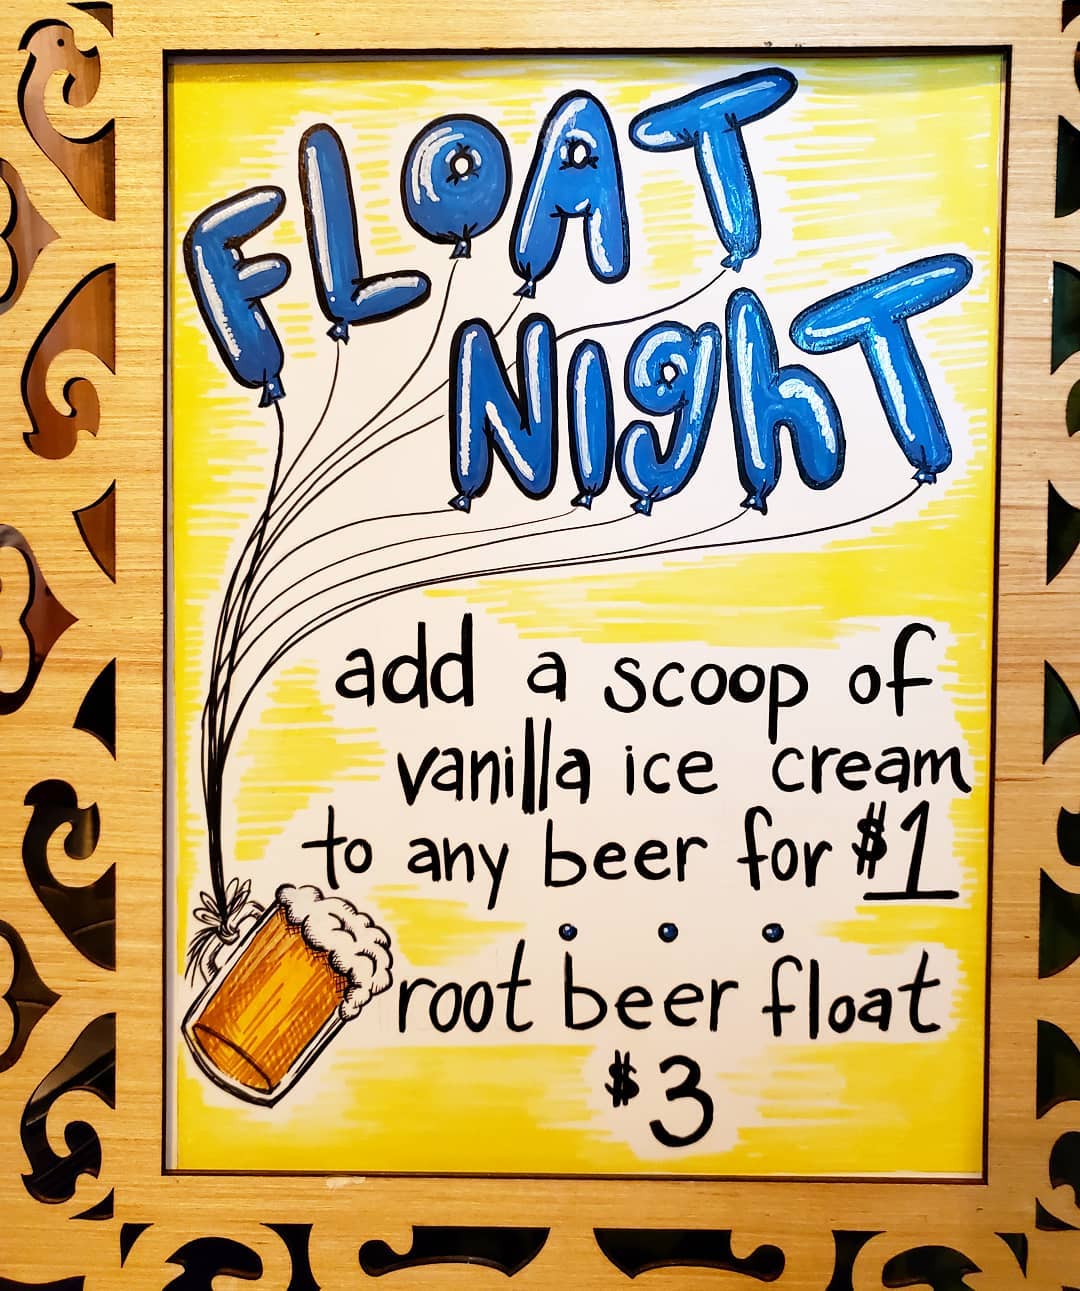 FLOAT
NIghT
add a scoop of
vanilla ice cream
to any beer for $1
root beer float
$3